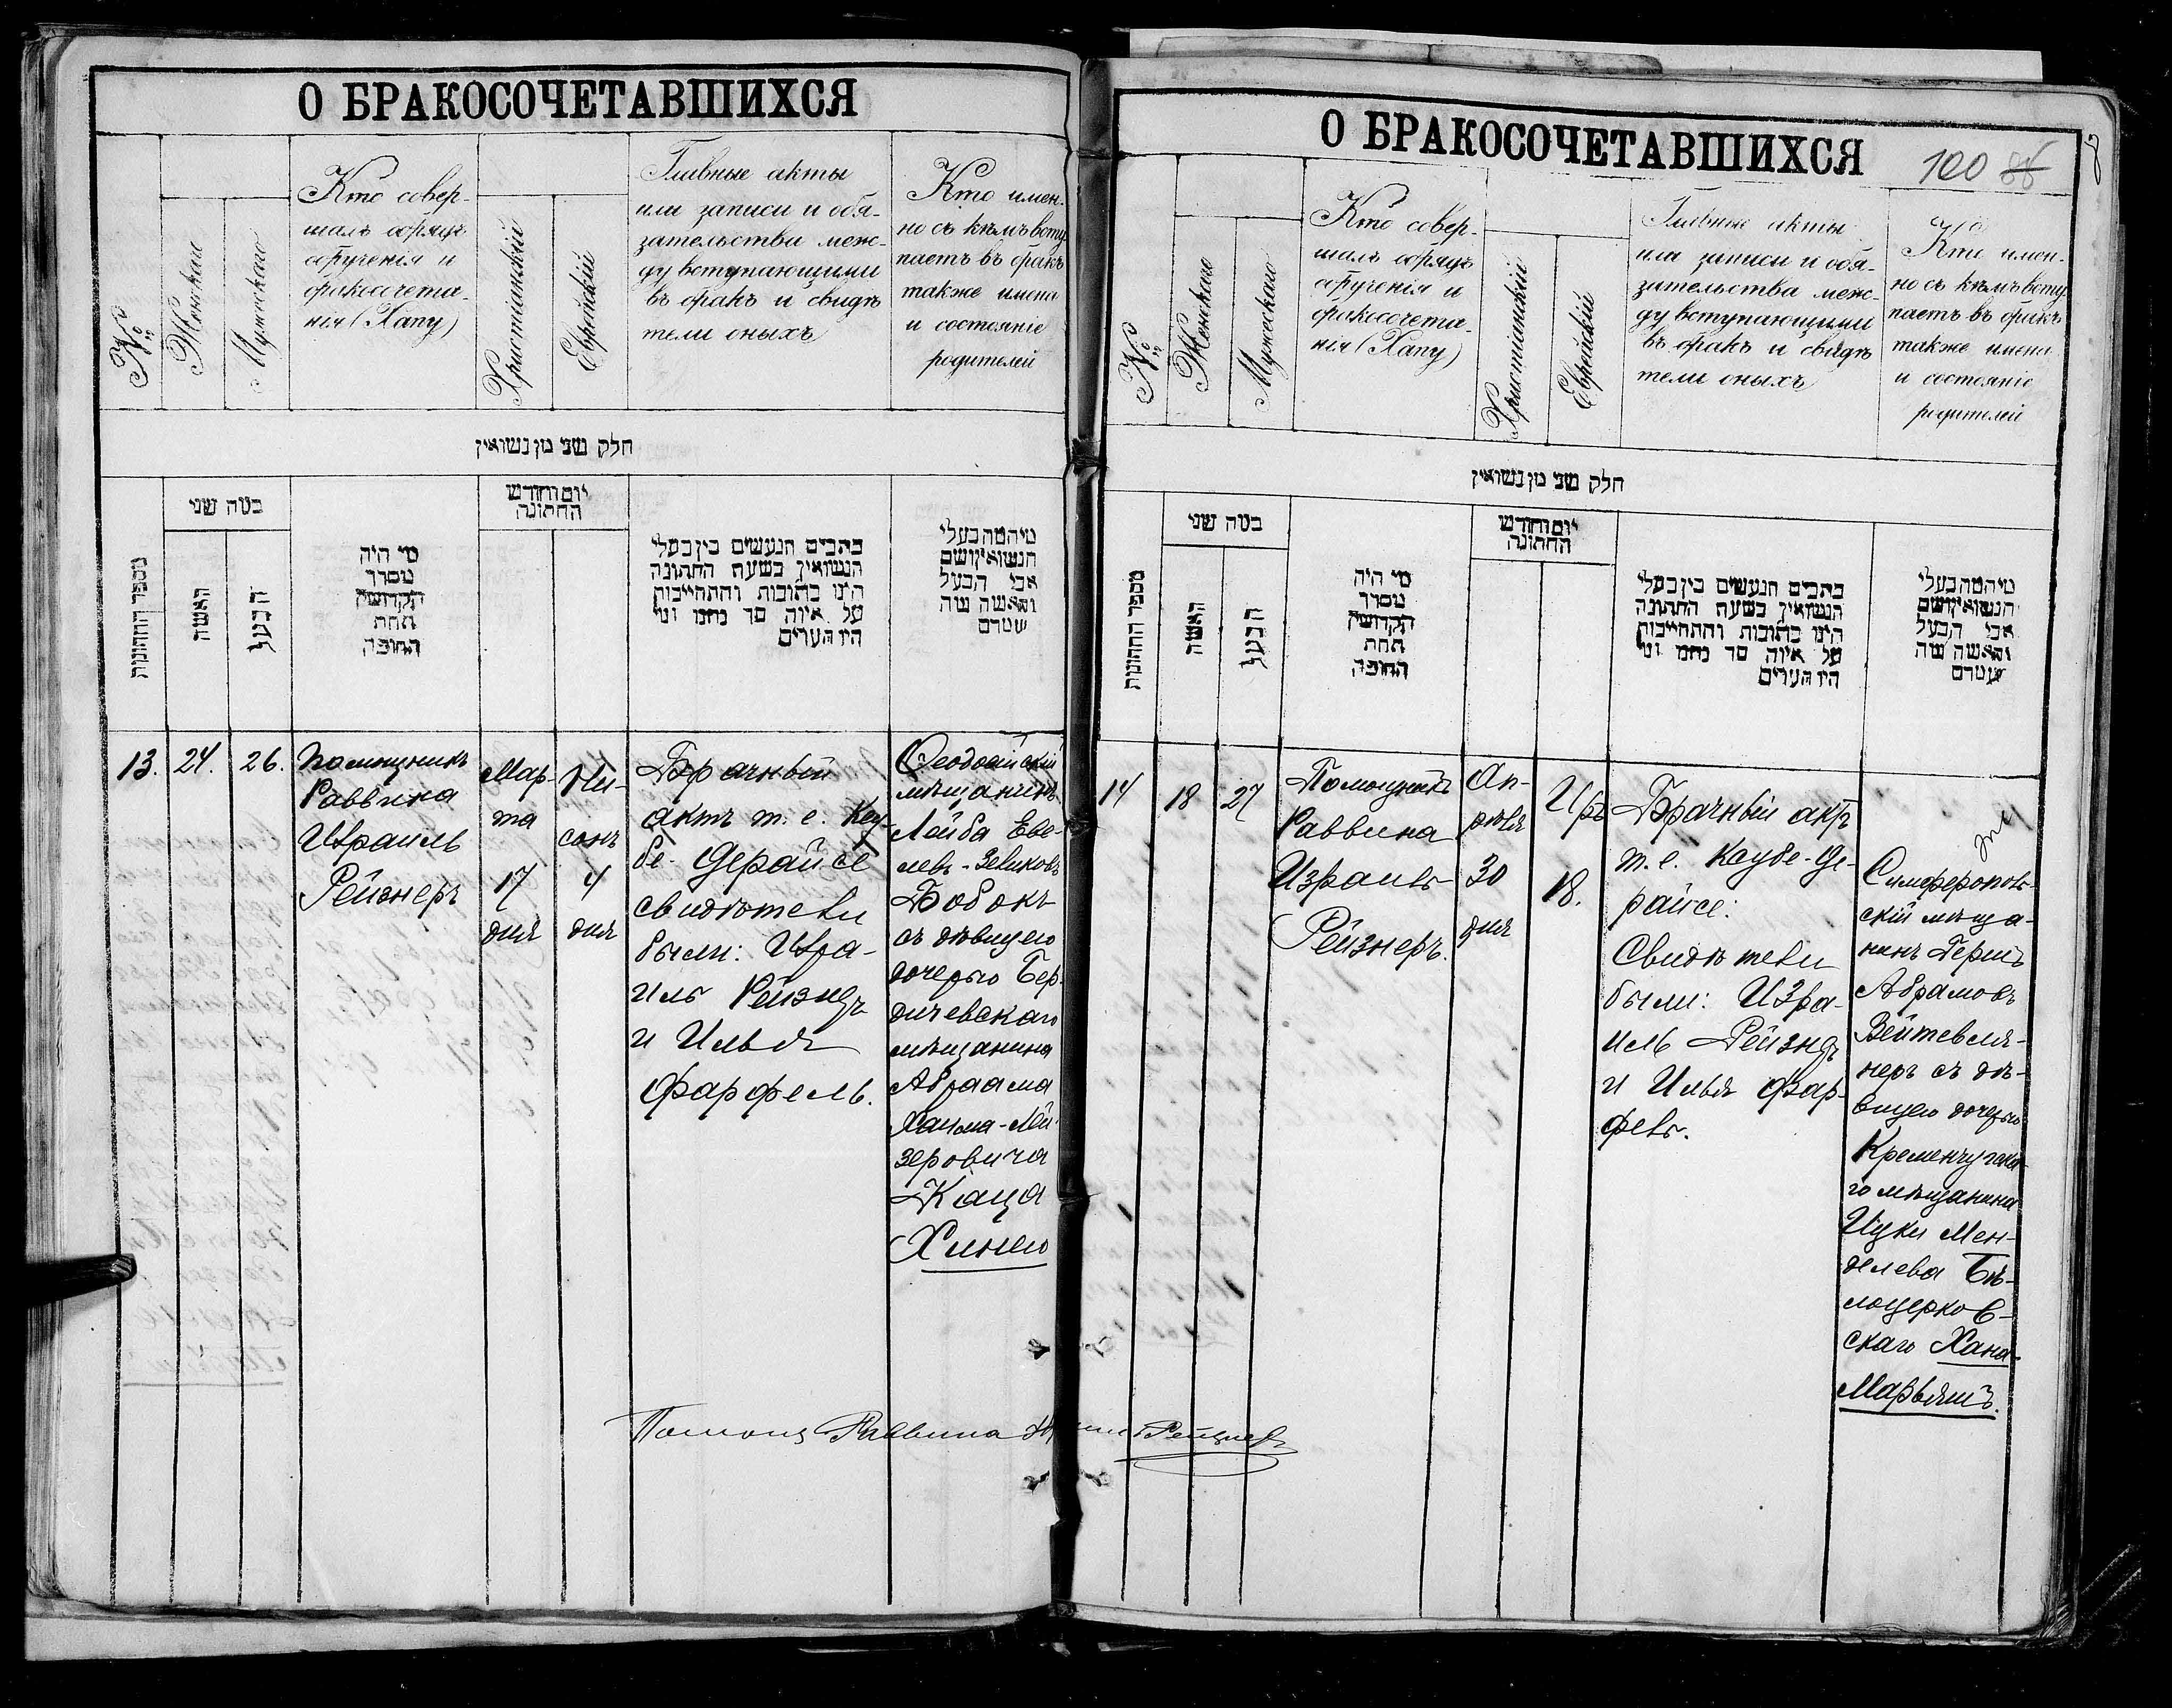 О БРАКОСОЧЕТАВШИХСЯ
№
Женскаго
Мужескаго
Кто совер-
шалъ обрядъ
обрученія и
бракосочета-
нія (Хапу)
Христіанскій
Еврейскій
Главные акты
или записи и обя-
зательства меж-
ду вступающими
въ бракъ и свидѣ
тели оныхъ
Кто имен-
но съ кѣмъ всту
паетъ въ бракъ
также имена
и состояніе
родителей
חלק שני מן נשואין
מספר החתונות
במה שני
האשה
הבעל
מי היה
מסדר
הקדושין
תחת
החופה
יום וחודש
החתונה
כתבים הנעשים בין בעלי
הנשואין בשעת החתונה
היינו כתובות והתחייבות
על איזה סך
היו העדים
הנשואין ושם
אבי הבעל
13.
24.
26.
Помощникъ
Раввина
Израиль
Рейзнеръ
Мар-
та
17
дня
Ни-
санъ
4
дня
Брачный
актъ т. е. Кеу-
бе-Дерайсе
свидѣтели
были: Изра-
иль Рейзнеръ
и Илья
Фарфель.
Феодосійскій
мѣщанинъ
Лейба Еве-
левъ-Зеликовъ
Бобокъ
съ дѣвицею
дочерью Бер-
дичевскаго
мѣщанина
Абраама
Хаима-Лей-
зеровича
Каца
Хинею
О БРАКОСОЧЕТАВШИХСЯ
100
№
Женскаго
Мужескаго
Кто совер-
шалъ обрядъ
обрученія и
бракосочета-
нія (Хапу)
Христіанскій
Еврейскій
Главные акты
или записи и обя-
зательства меж-
ду вступающими
въ бракъ и свидѣ
тели оныхъ
Кто имен-
но съ кѣмъ всту
паетъ въ бракъ
также имена
и состояніе
родителей
חלק שני מן נשואין
מספר החתונות
במה שני
האשה
הבעל
מי היה
מסדר
הקדושין
תחת
החופה
יום וחודש
החתונה
כתבים הנעשים בין בעלי
הנשואין בשעת החתונה
היינו כתובות והתחייבות
על איזה סך
היו העדים
הנשואין ושם
אבי הבעל
14
18
27
Помощникъ
Раввина
Израиль
Рейзнеръ.
Ап-
рѣля
30
дня
Иръ
18.
Брачный актъ
т. е. Каубе-Де-
райсе:
Свидѣтели
были: Изра-
иль Рейзнеръ
и Илья Фар-
фель.
Симферополь-
скій мѣща-
нинъ Гершъ
Абрамовъ
Вейтевля-
неръ съ дѣ-
вицею дочерью
Кременчугска-
го мѣщанина
Ицки Мен-
делева Бѣ-
лоцерков-
скаго Хана-
Марьямъ.
Помощ Раввина Рейзнеръ